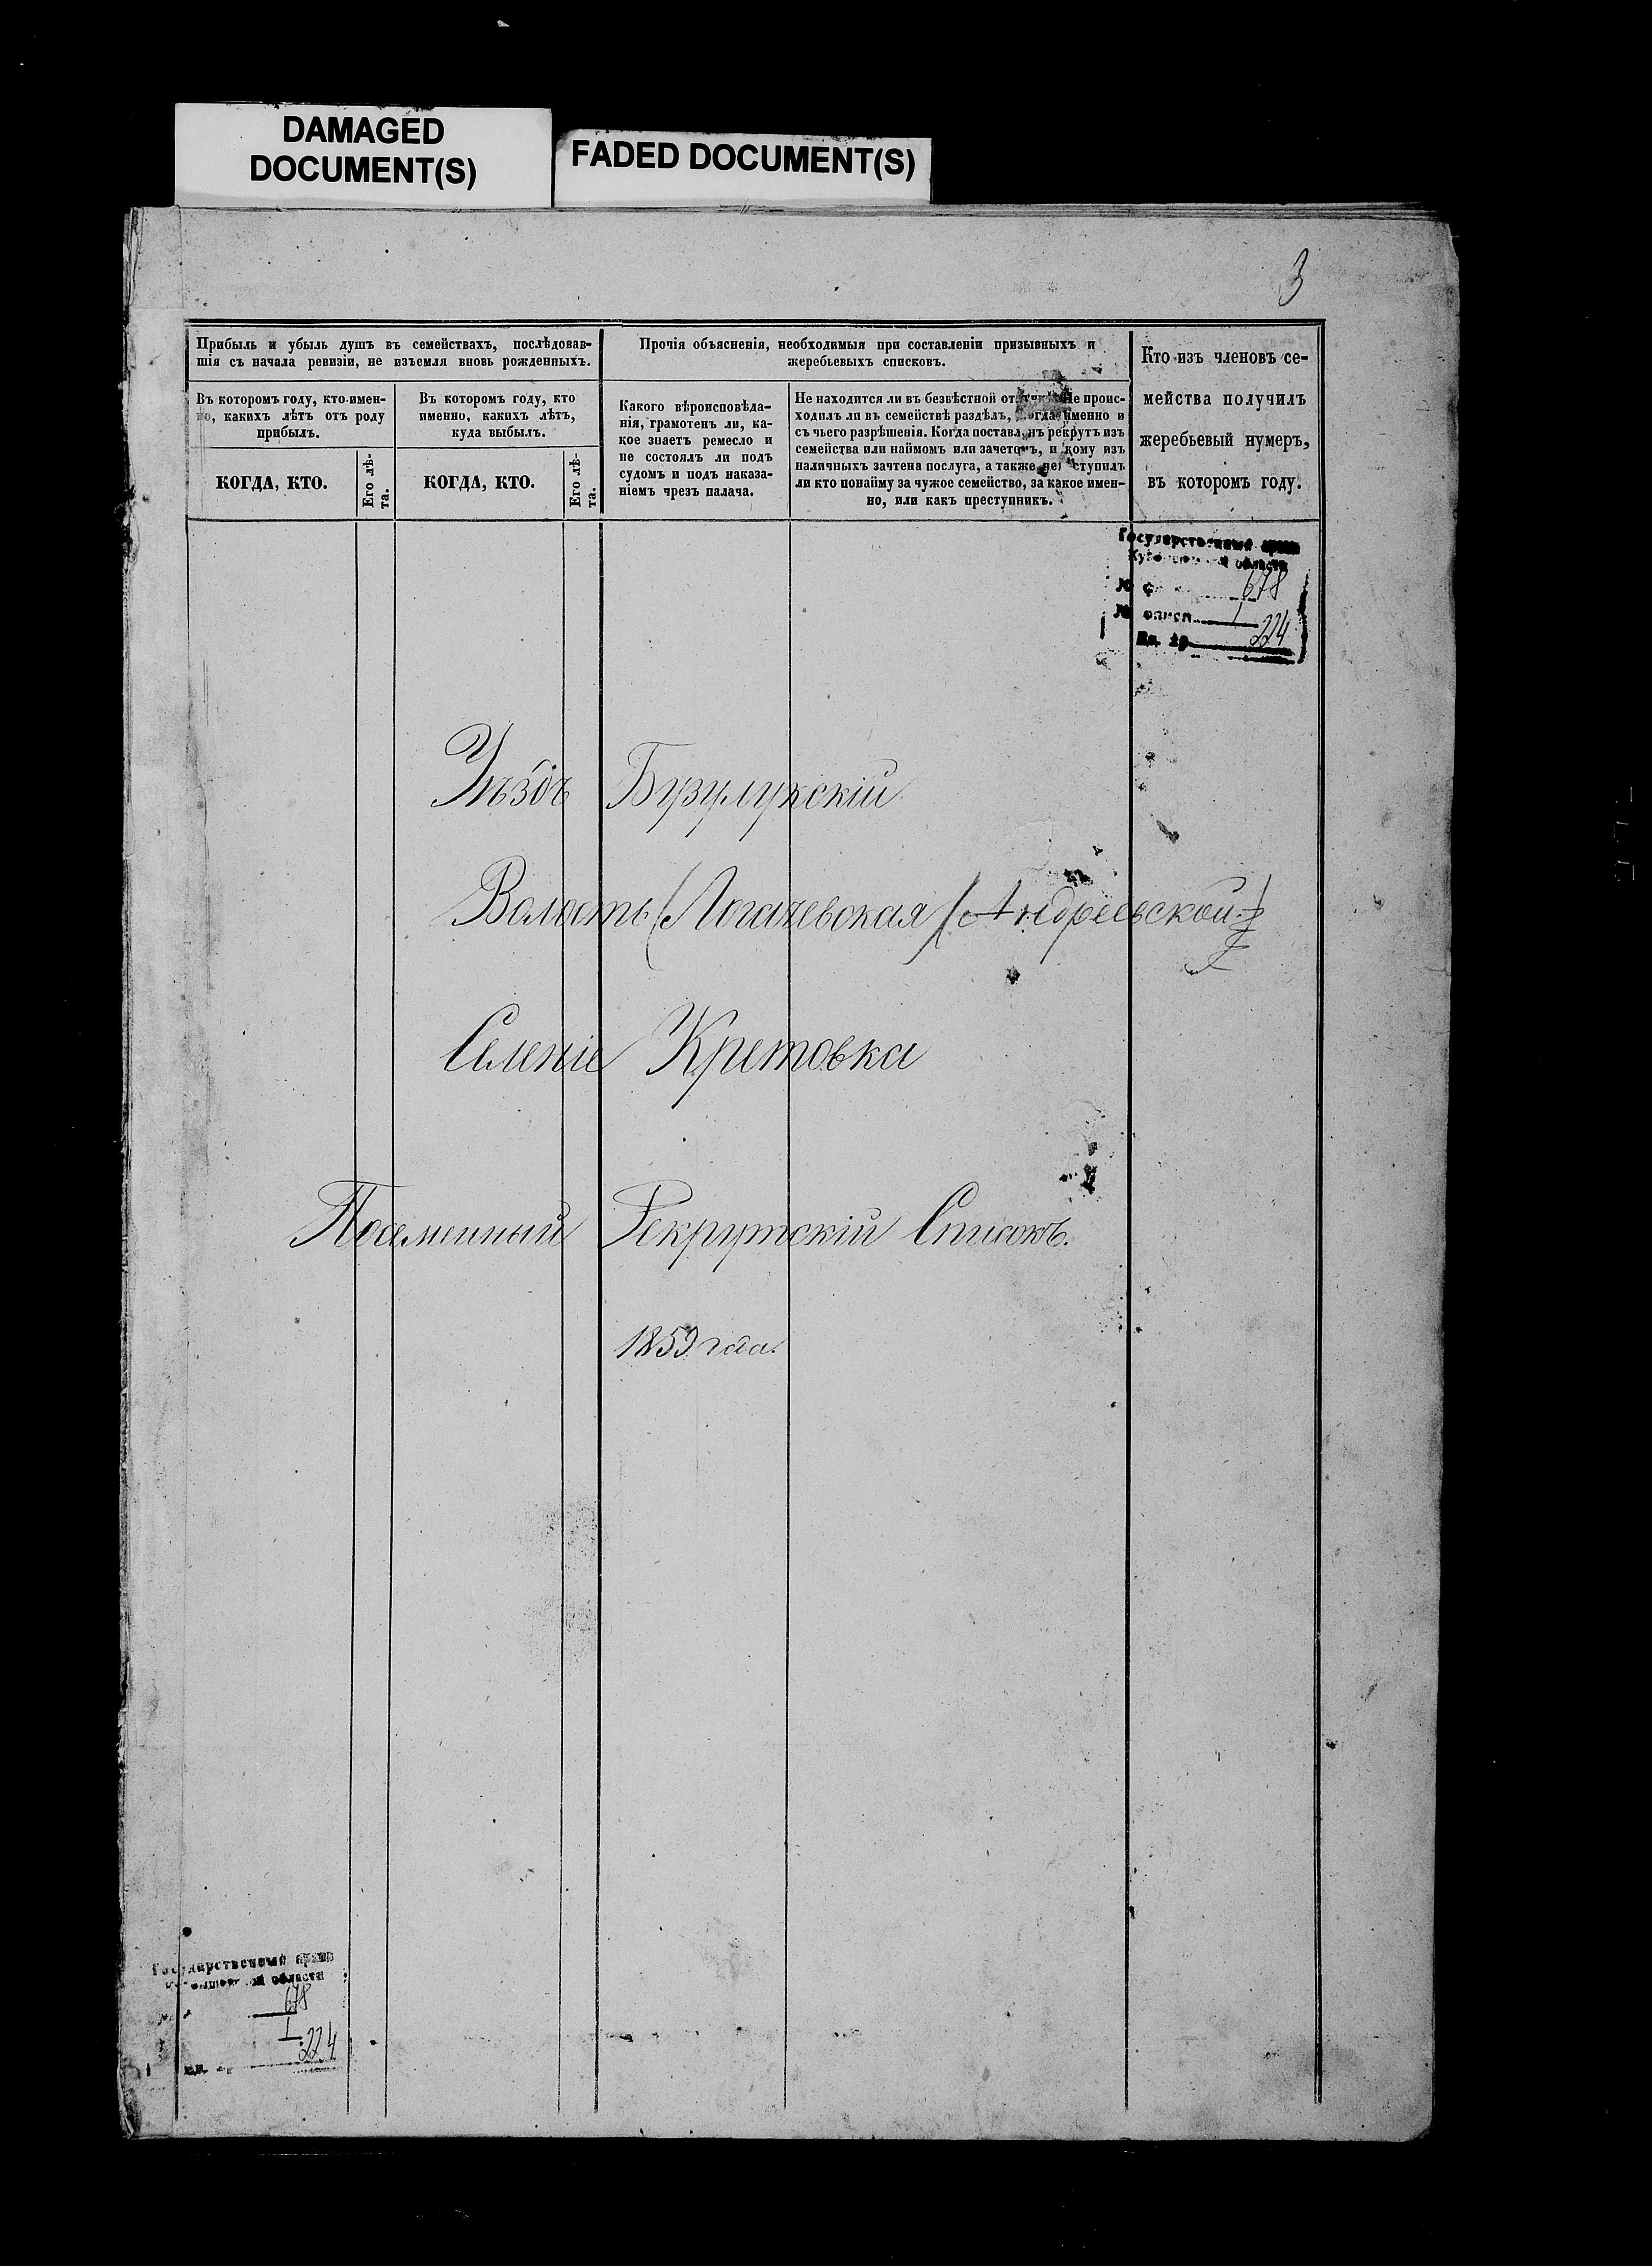 DAMAGED
DOCUMENT(S)
FADED DOCUMENT(S)
3
Прибыль и убыль душъ въ семействахъ, послѣдовав-
шія съ начала ревизіи, не изъемля вновь рожденныхъ.
Прочія объясненія, необходимыя при составленіи призывныхъ и
жеребьевыхъ списковъ.
Кто изъ членовъ се-
мейства получилъ
жеребьевый нумеръ,
въ которомъ году.
Въ которомъ году, кто имен-
но, какихъ лѣтъ отъ роду
прибылъ.
Въ которомъ году, кто
именно, какихъ лѣтъ,
куда выбылъ.
Какого вѣроисповѣда-
нія, грамотенъ ли, ка-
кое знаетъ ремесло и
не состоялъ ли подъ
судомъ и подъ наказа-
ніемъ чрезъ палача.
Не находится ли въ безвѣстной Не проис-
ходилъ ли въ семействѣ раздѣлъ, когда именно и
съ чьего разрѣшенія. Когда поставленъ рекрутъ изъ
семейства или наймомъ или зачетомъ, и кому изъ
наличныхъ зачтена послуга, а также не поступилъ
ли кто понайму за чужое семейство, за какое имен-
но, или какъ преступникъ.
КОГДА, КТО.
Его лѣ-
та.
КОГДА, КТО.
Его лѣ-
та.
Государственный архив
области
№ ф 678
№ описи 1
224
Уѣздъ Бузулукскій
Волость (Логачевская (Андреевской)
Селеніе Кретовка
Посемейный Рекрутскій Списокъ.
1859 года.
Государственный архив
области
678
1
224